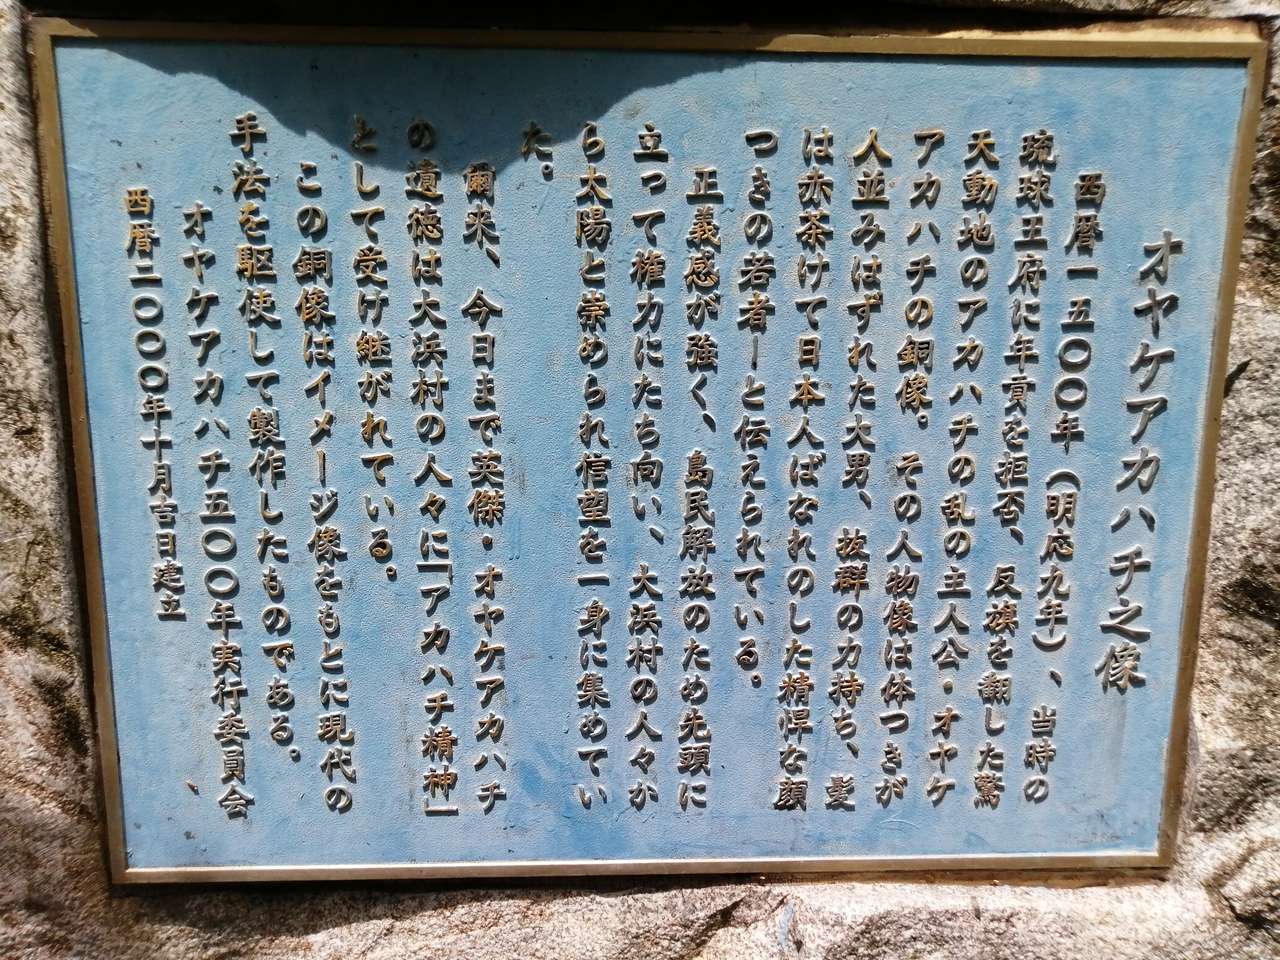 オヤケアカハチ之像
西暦一五〇〇年（明応九年）、当時の
琉球王府に年貢を拒否、反旗を翻した驚
天動地のアカハチの乱の主人公・オヤケ
アカハチの銅像。その人物像は体つきが
人並みはずれた大男、抜群の力持ち、髪
は赤茶けて日本人ばなれのした精悍な顔
つきの若者ーと伝えられている。
正義感が強く、島民解放のため先頭に
立って権力にたち向い、大浜村の人々か
ら太陽と崇められ信望を一身に集めてい
た。
爾来、今日まで英傑・オヤケアカハチ
の遺徳は大浜村の人々に「アカハチ精神」
として受け継がれている。
この銅像はイメージ像をもとに現代の
手法を駆使して製作したものである。
オヤケアカハチ五〇〇年実行委員会
西暦二〇〇〇年十月吉日建立